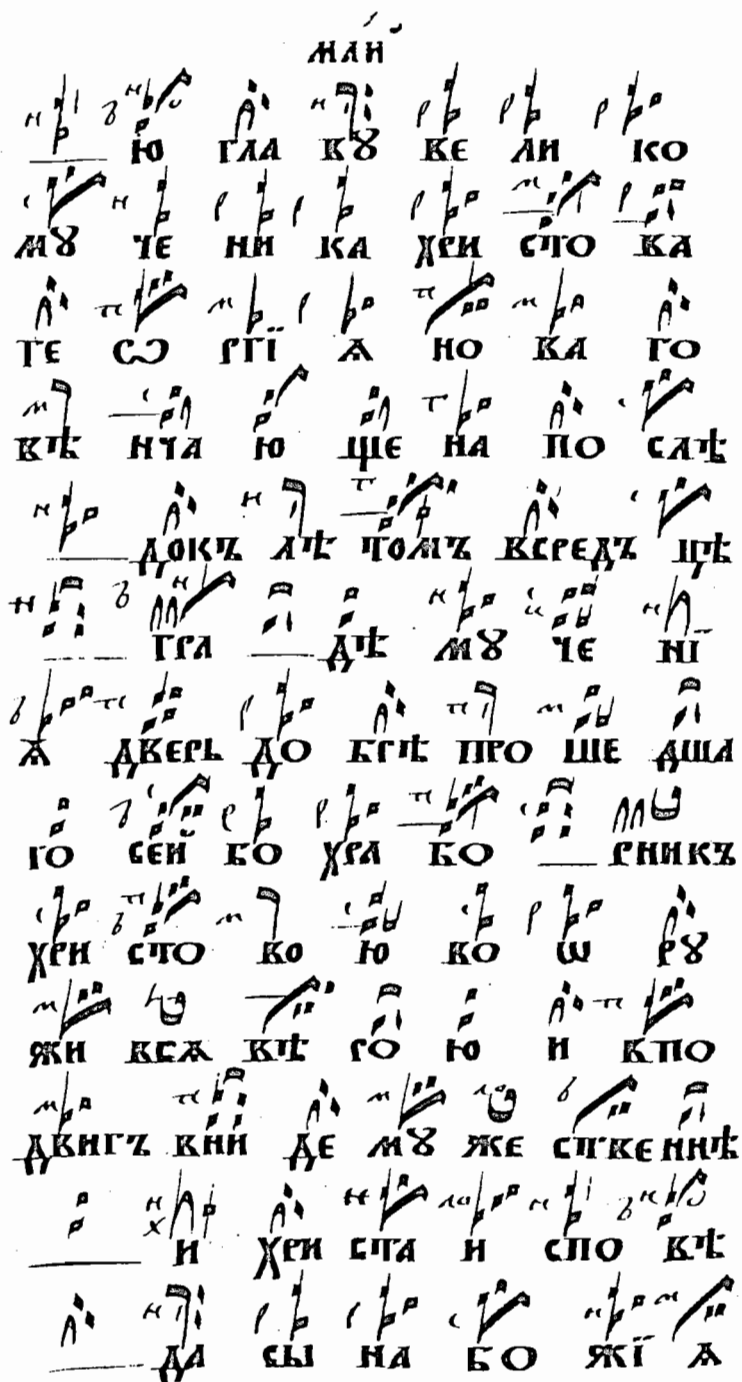 май
ю гла вꙋ ве ли ко
мꙋ че ни ка хри сто ва
ге ѡ ргї ѧ но ва го
вѣ нча ю ще на по слѣ
докъ лѣ томъ всредъ цѣ
гра дѣ мꙋ че нї
ѧ дверь до брѣ про ше дша
го сей бо хра бо рникъ
хри сто во ю во ѡ рꙋ
жи всѧ вѣ ро ю и впо
двигъ вни де мꙋ же ств҃е ннѣ
и хри ста и спо вѣ
да сы на бо жї ѧ